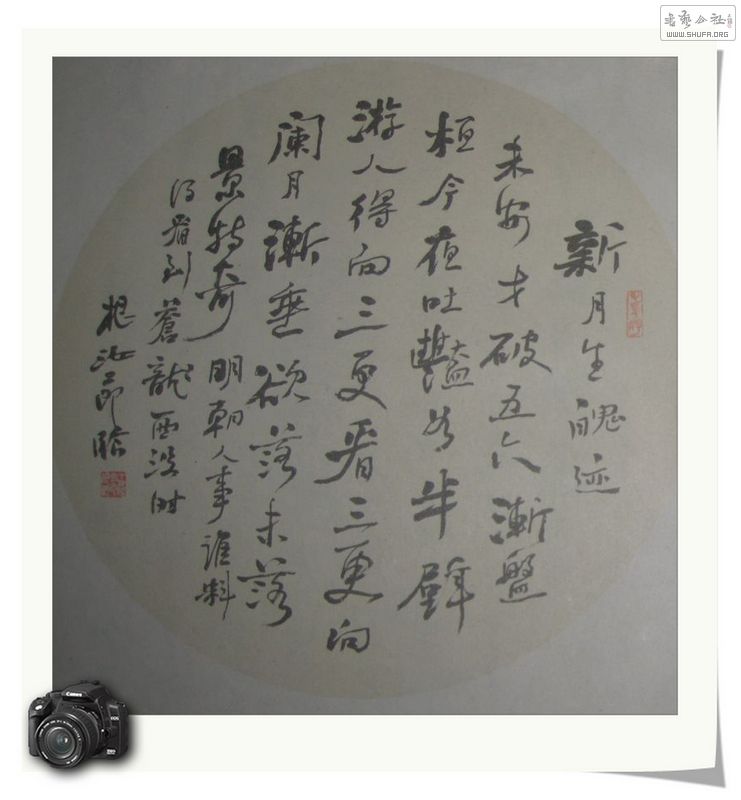 新月生魄迹
未安才破五六漸盤
桓今夜吐豔如半璧
游人得向三更看三更向
阑月漸垂欲落未落
景特奇明朝人事誰料
得看到蒼龍西没时
臨
書藝公社
WWW.SHUFA.ORG
Canon
EOS